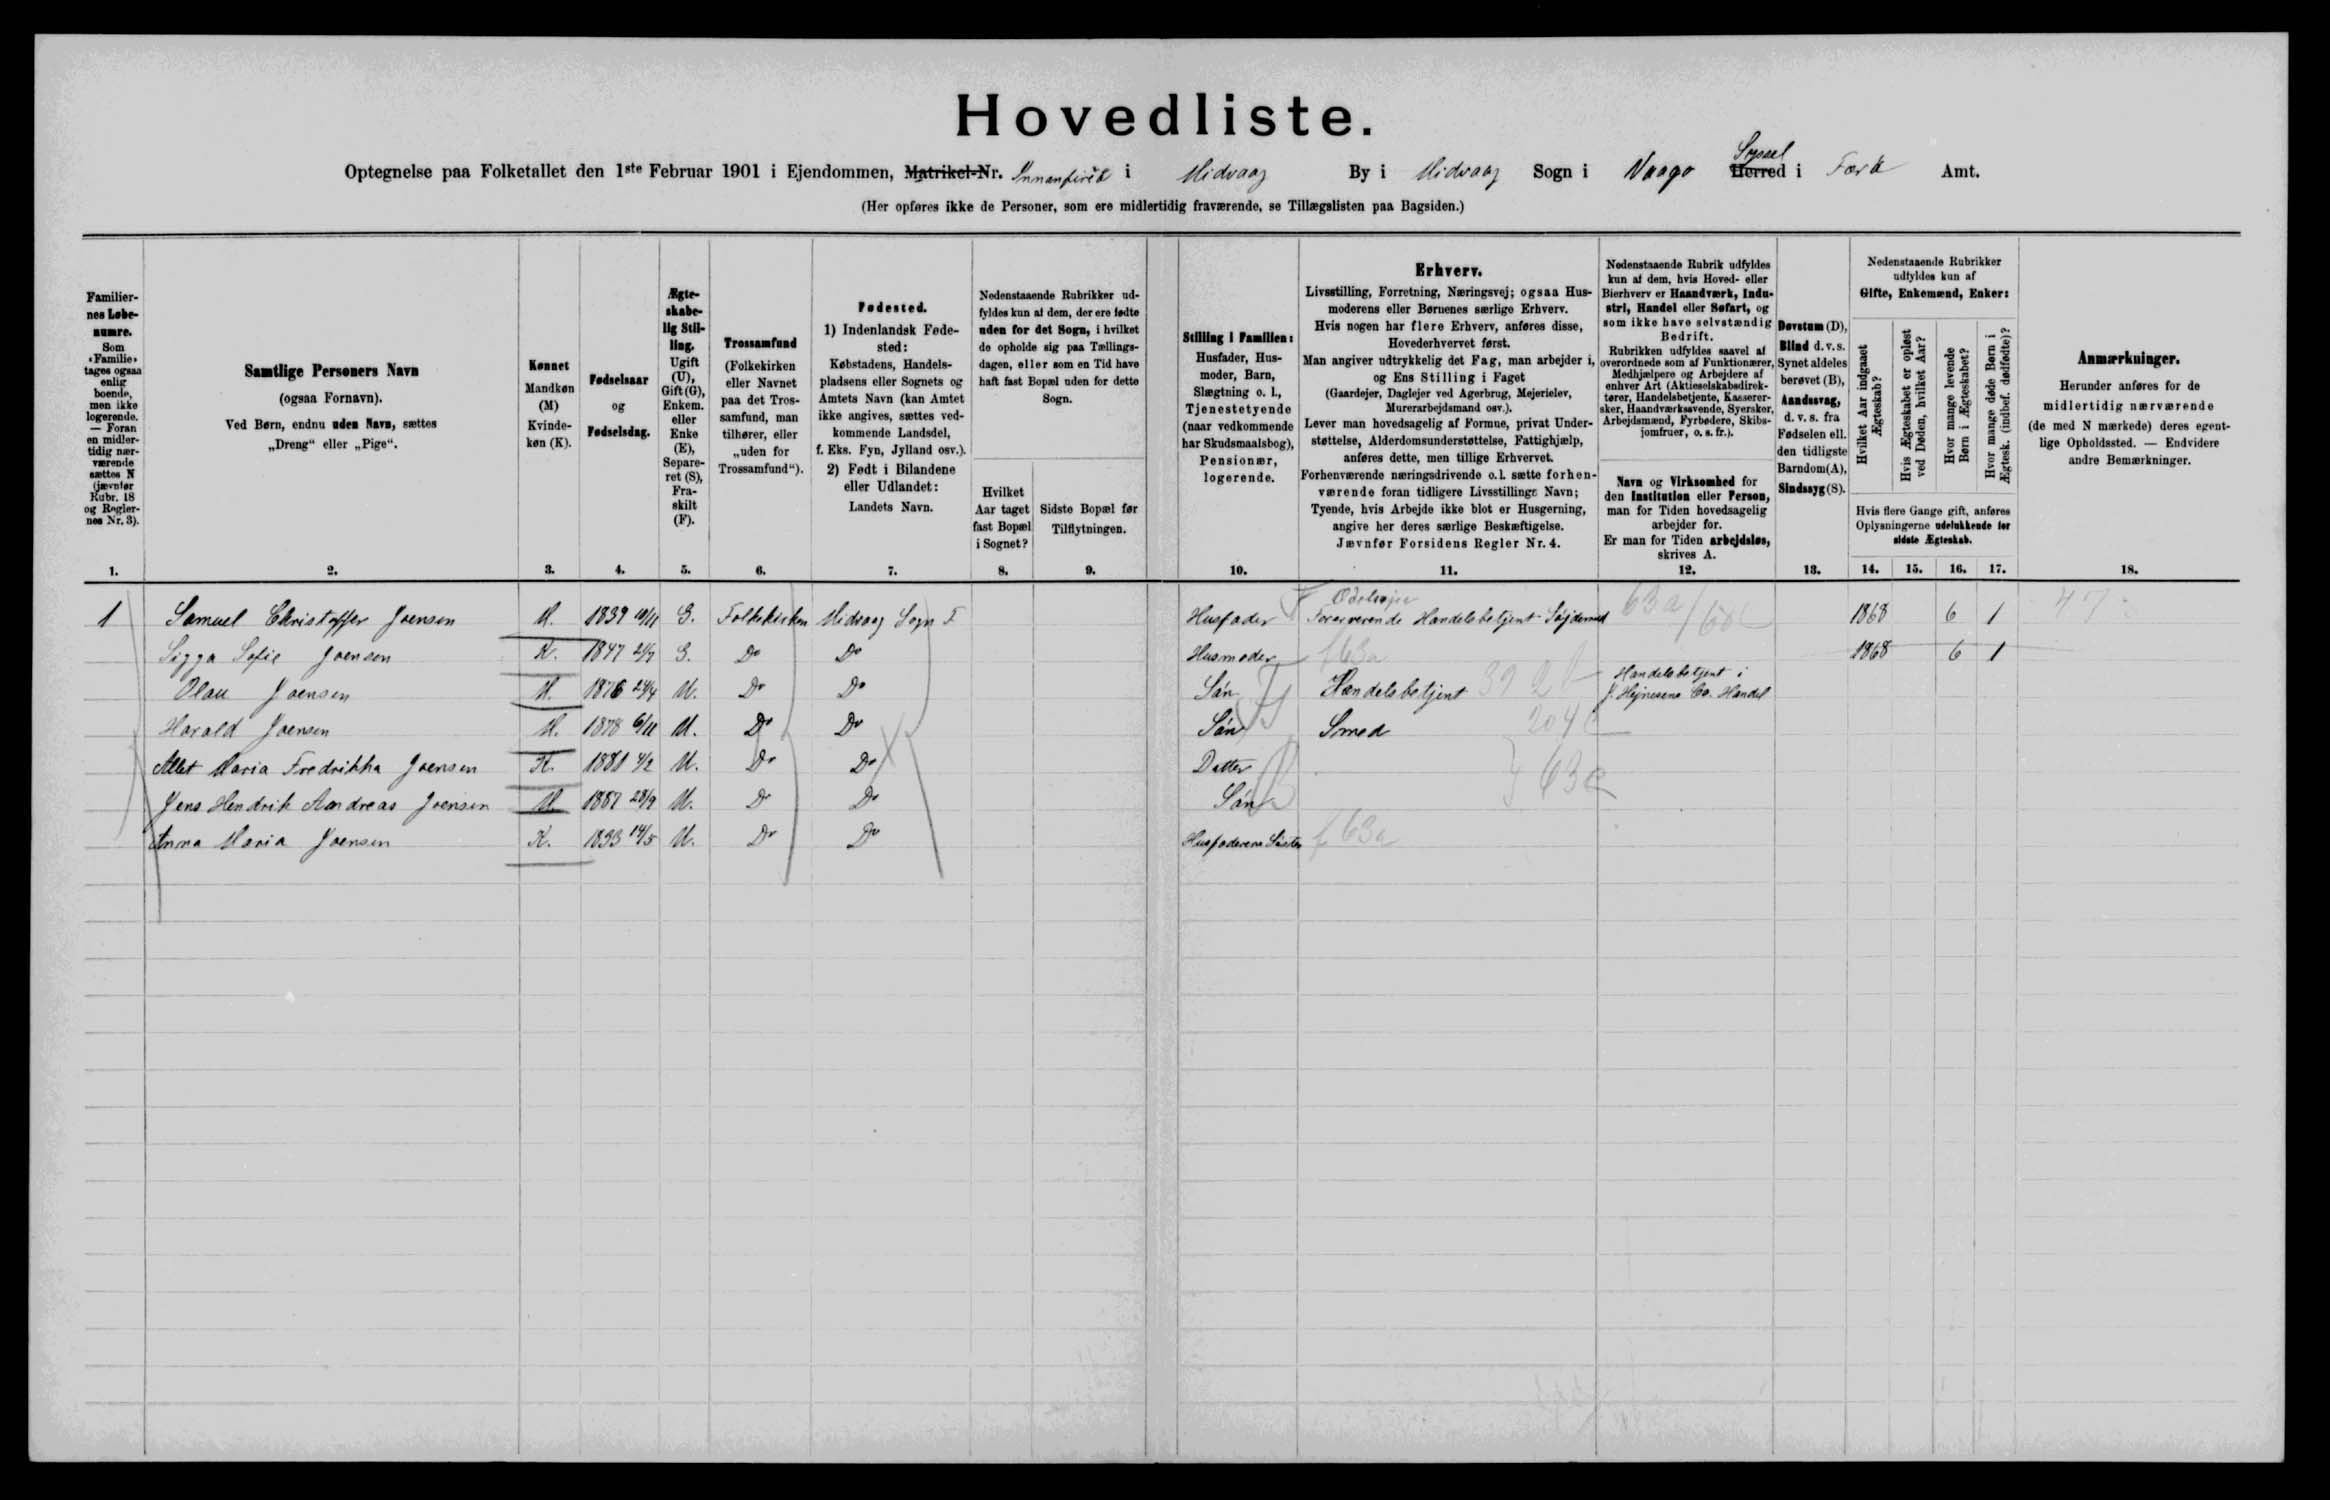 Hovedliste.
Optegnelse paa Folketallet den 1ste Februar 1901 i Ejendommen, Matrikel-Nr. i Midvaag By i Midvaag Sogn i Vaagø Herred Syssel i Færø Amt.
(Her opføres ikke de Personer, som ere midlertidig fraværende, se Tillægslisten paa Bagsiden.)
Familier-
nes Løbe-
numre.
Som
»Familie»
tages ogsaa
enlig
boende,
men ikke
logerende.
— Foran
en midler-
tidig nær-
værende
sættes N
(jævnfør
Rubr. 18
og Regler-
nes Nr. 3).
1.
Samtlige Personers Navn
(ogsaa Fornavn).
Ved Børn, endnu uden Navn, sættes
„Dreng“ eller „Pige“.
2.
Kønnet
Mandkøn
(M)
Kvinde-
køn (K).
3.
Fødselsaar
og
Fødselsdag.
4.
Ægte-
skabe-
lig Stil-
ling.
Ugift
(U),
Gift (G),
Enkem.
eller
Enke
(E),
Separe-
ret (S),
Fra-
skilt
(F).
5.
Trossamfund
(Folkekirken
eller Navnet
paa det Tros-
samfund, man
tilhører, eller
„uden for
Trossamfund“).
6.
Fødested.
1) Indenlandsk Føde-
sted:
Købstadens, Handels-
pladsens eller Sognets og
Amtets Navn (kan Amtet
ikke angives, sættes ved-
kommende Landsdel,
f. Eks. Fyn, Jylland osv.).
2) Født i Bilandene
eller Udlandet:
Landets Navn.
7.
Nedenstaaende Rubrikker ud-
fyldes kun af dem, der ere fødte
uden for det Sogn, i hvilket
de opholde sig paa Tællings-
dagen, eller som en Tid have
haft fast Bopæl uden for dette
Sogn.
Hvilket
Aar taget
fast Bopæl
i Sognet?
8.
Sidste Bopæl før
Tilflytningen.
9.
Stilling i Familien:
Husfader, Hus-
moder, Barn,
Slægtning o. l.,
Tjenestetyende
(naar vedkommende
har Skudsmaalsbog),
Pensionær,
logerende.
10.
Erhverv.
Livsstilling, Forretning, Næringsvej; ogsaa Hus-
moderens eller Børnenes særlige Erhverv.
Hvis nogen har flere Erhverv, anføres disse,
Hovederhvervet først.
Man angiver udtrykkelig det Fag, man arbejder i,
og Ens Stilling i Faget
(Gaardejer, Daglejer ved Agerbrug, Mejerielev,
Murerarbejdsmand osv.).
Lever man hovedsagelig af Formue, privat Under-
støttelse, Alderdomsunderstøttelse, Fattighjælp,
anføres dette, men tillige Erhvervet.
Forhenværende næringsdrivende o.l. sætte forhen-
værende foran tidligere Livsstillings Navn;
Tyende, hvis Arbejde ikke blot er Husgerning,
angive her deres særlige Beskæftigelse.
Jævnfør Forsidens Regler Nr. 4.
11.
Nedenstaaende Rubrik udfyldes
kun af dem, hvis Hoved- eller
Bierhverv er Haandværk, Indu-
stri, Handel eller Søfart, og
som ikke have selvstændig
Bedrift.
Rubrikken udfyldes saavel af
overordnede som af Funktionærer,
Medhjælpere og Arbejdere af
enhver Art (Aktieselskabsdirek-
tører, Handelsbetjente, Kasserer-
sker, Haandværkssvende, Syersker,
Arbejdsmænd, Fyrbødere, Skibs-
jomfruer, o. s. fr.).
Navn og Virksomhed for
den Institution eller Person,
man for Tiden hovedsagelig
arbejder for.
Er man for Tiden arbejdsløs,
skrives A.
12.
Døvstum (D),
Blind d. v. s.
Synet aldeles
berøvet (B),
Aandssvag,
d. v. s. fra
Fødselen ell.
den tidligste
Barndom (A),
Sindssyg (S).
13.
Nedenstaaende Rubrikker
udfyldes kun af
Gifte, Enkemænd, Enker:
Hvilket Aar indgaaet
Ægteskab?
Hvis Ægteskabet er opløst
ved Døden, hvilket Aar?
Hvor mange levende
Børn i Ægteskabet?
Hvor mange døde Børn i
Ægtesk. (indbef. dødfødte)?
Hvis flere Gange gift, anføres
Oplysningerne udelukkende for
sidste Ægteskab.
14. 15. 16. 17.
Anmærkninger.
Herunder anføres for de
midlertidig nærværende
(de med N mærkede) deres egent-
lige Opholdssted. — Endvidere
andre Bemærkninger.
18.
1 Samuel Christoffer Joensen M. 1839 10/11 G. Folkekirken Midvaag Sogn F Husfader Handelsbetjent 63a 1868 6 1 47
Sigga Sofie Joensen K. 1847 G. Do Do Husmoder f 63a 1868 6 1
Olau Joensen M. 1876 24/4 U. Do Do Søn Handelsbetjent Handelsbetjent i
Co. Handel
Harald Joensen M. 1878 6/11 U. Do Do Søn Smed 204
Maria Fredrikka Joensen K. 1881 4/2 U. Do Do Datter
Jens Hendrik Andreas Joensen M. 1887 28/9 U. Do Do Søn 63a
Anna Maria Joensen K. 1833 14/5 U. Do Do Husfaderens Søster f 63a